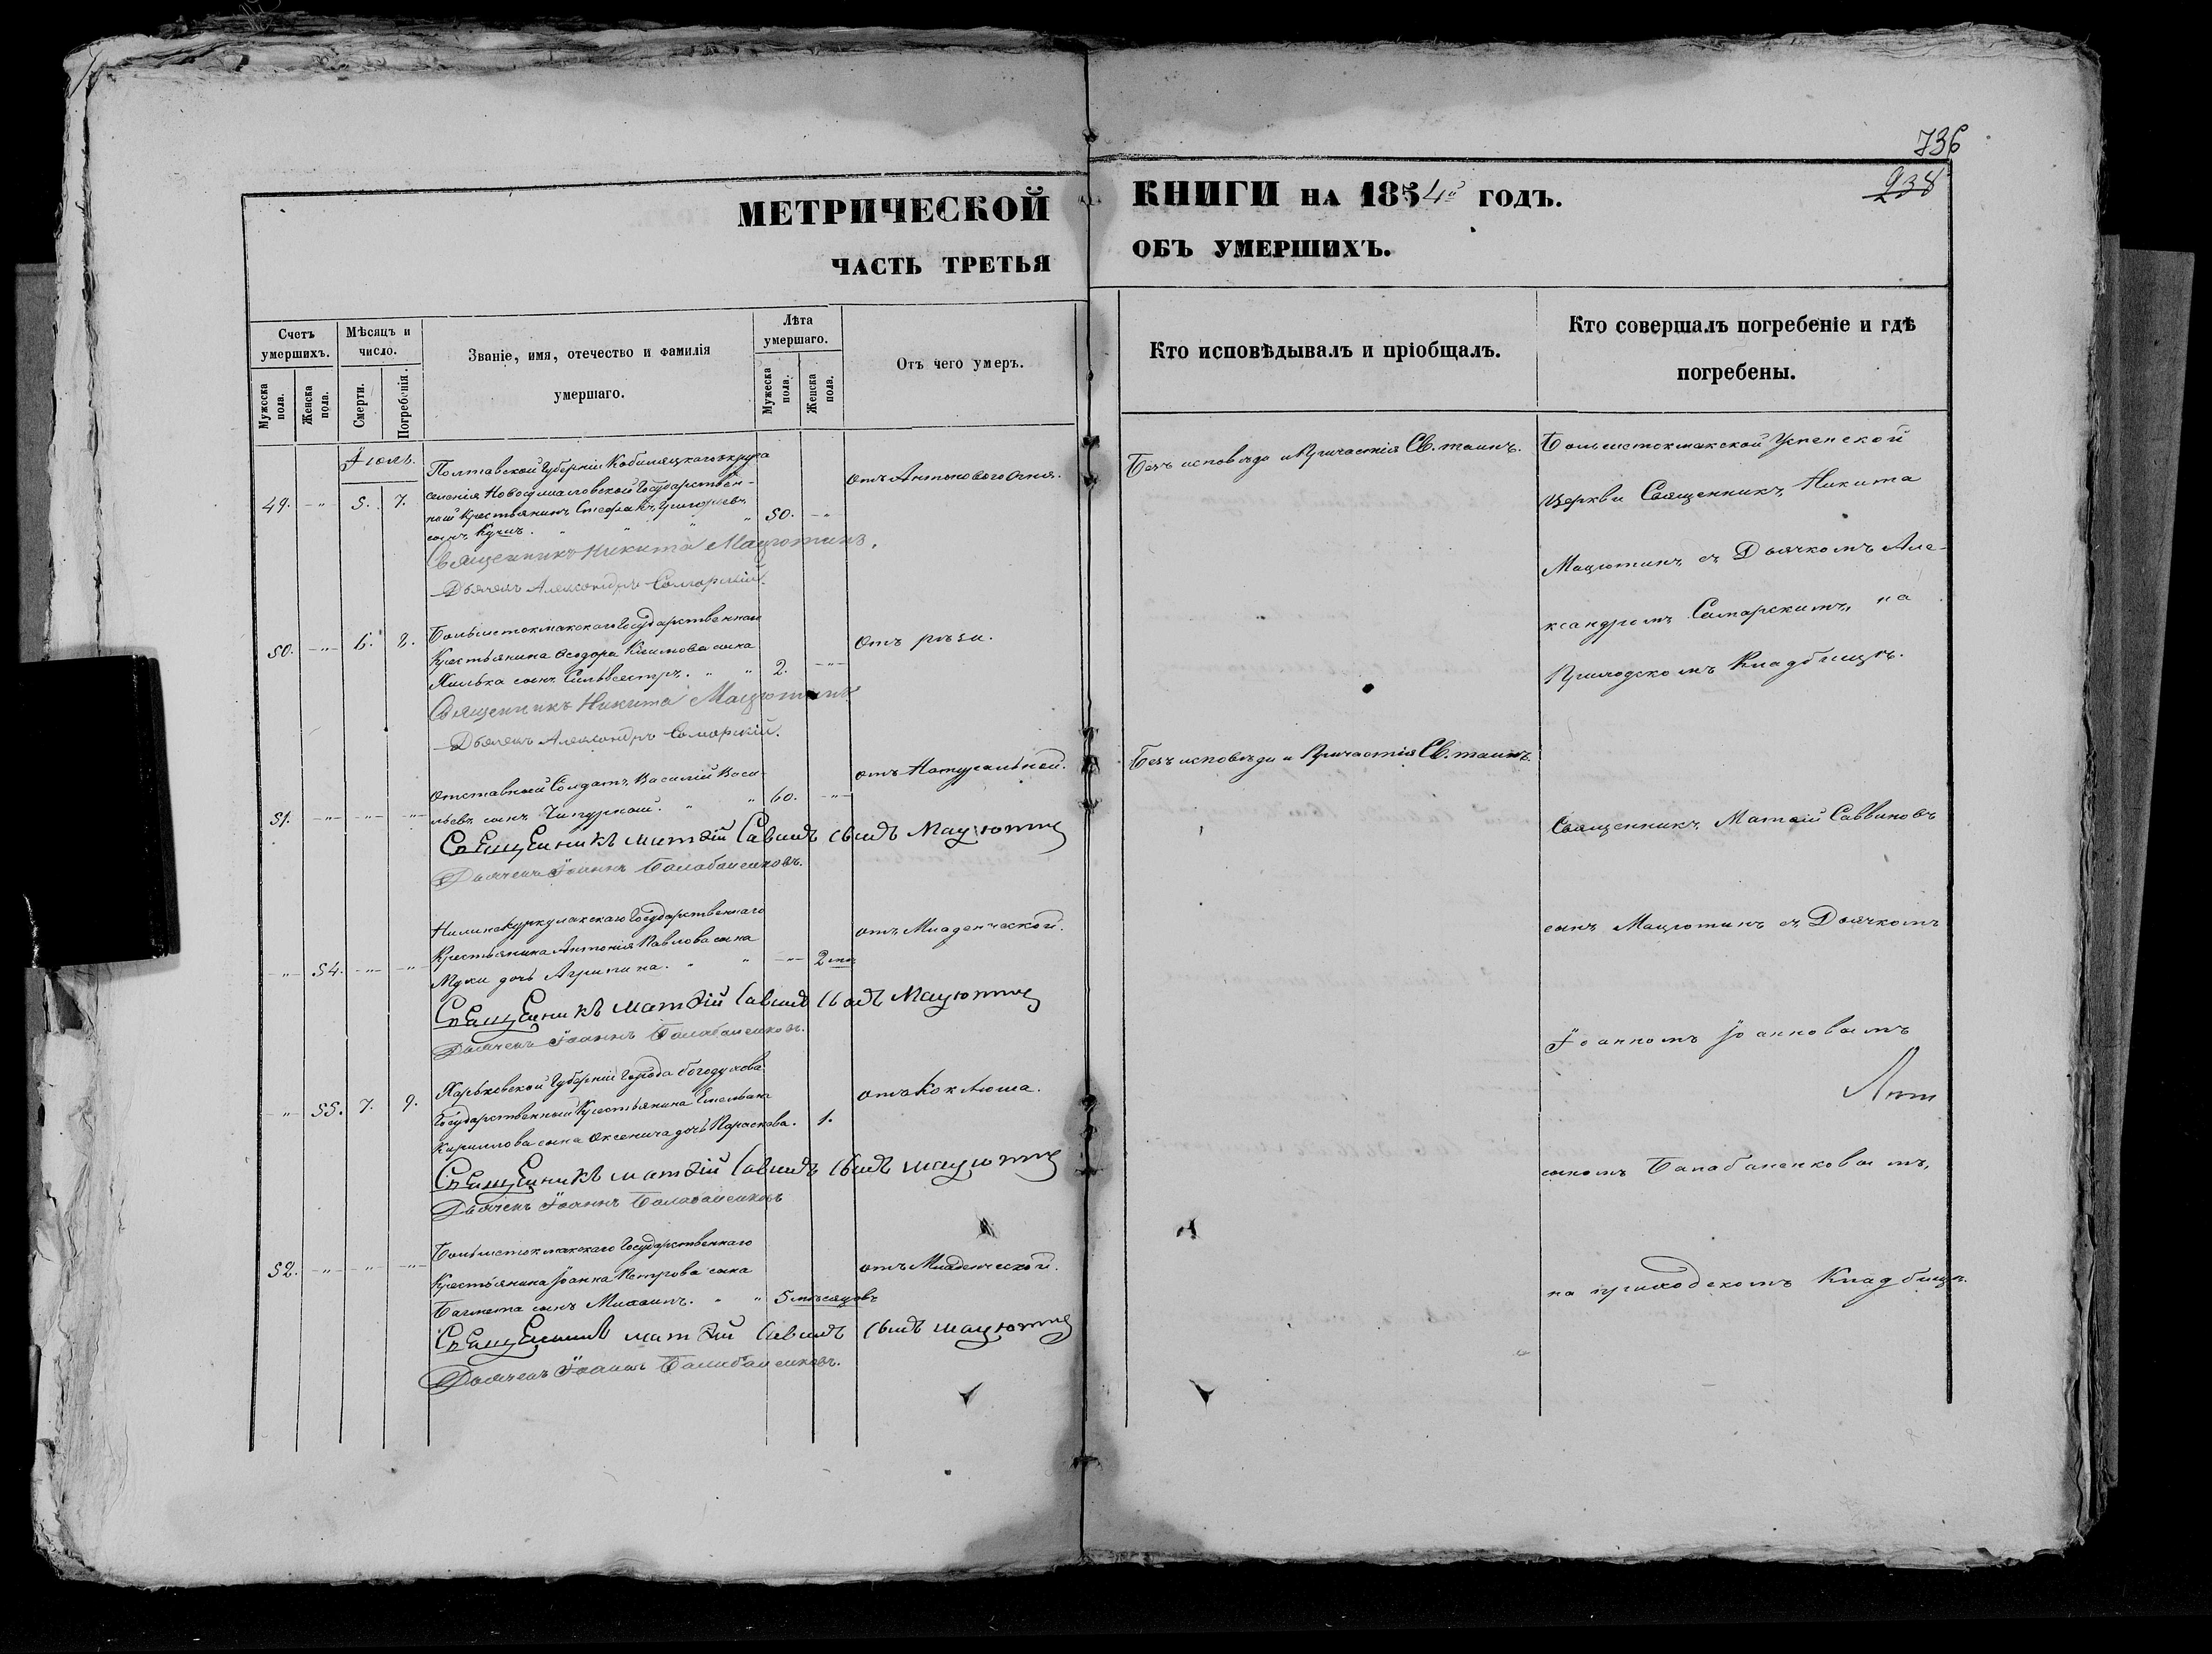 736
938
МЕТРИЧЕСКОЙ
КНИГИ НА 1854й ГОДЪ.
ЧАСТЬ ТРЕТЬЯ
ОБЪ УМЕРШИХЪ.
Счетъ умершихъ.
Мужеска пола.
Женска пола.
Мѣсяцъ и число.
Смерти.
Погребенія.
Званіе, имя, отечество и фамилія
умершаго.
Лѣта умершаго.
Мужеска пола.
Женска пола.
Отъ чего умеръ.
Кто исповѣдывалъ и пріобщалъ.
Кто совершалъ погребеніе и гдѣ
погребены.
Іюль.
49. -"- 5. 7.
Полтавской Губерніи Кобиляцкаго округа
селенія Государствен-
ный Крестьянинъ Стефанъ Григорьевъ
сынъ " " " 50. -"-
отъ Антонового Огня.
Безъ исповѣди и Причастія Св. таинъ.
Священникъ Никита Мацютинъ.
Дьячекъ Александръ Самарскій.
50. -"- 6. 8.
Большетокмакскаго Государственнаго
Крестьянина Ѳеодора Климова сына
Хилька сынъ Сильвестръ. " " 2. -"-
Отъ рѣзи.
Священникъ Никита Мацютинъ
Дьячекъ Александръ Самарскій.
Большетокмакской Успенской
Церкви Священникъ Никита
Мацютинъ съ Дьячкомъ Але-
ксандромъ Самарскимъ, на
Приходскомъ Кладбищѣ.
51. -"- -"- -"-
Отставный Солдатъ Василій Васи-
льевъ сынъ " " 60. -"-
отъ Натуральной.
Безъ исповѣди и Причастія Св. таинъ.
Священникъ Матѳій Савинъ сынъ Мацютинъ
Дьячекъ Іоаннъ Балабаненковъ.
-"- 54. -"- -"-
Государственнаго
Крестьянина Антонія Павлова сына
Мухи дочь Агрипина. " " -"- 2
отъ Младенческой.
Священникъ Матѳій Савинъ сынъ Мацютинъ
Дьячекъ Іоаннъ Балабаненковъ.
-"- 55. 7. 9.
Харьковской Губерніи Города Богодухова
Государственный Крестьянина Емельяна
Кириллова сына дочь Параскева. 1.
отъ Коклюша.
Священникъ Матѳій Савинъ сынъ Мацютинъ
Дьячекъ Іоаннъ Балабаненковъ
52. -"- -"- -"-
Большетокмакскаго Государственнаго
Крестьянина Іоанна Петрова сына
сынъ Михаилъ. " " 5 мѣсяцовъ
отъ Младенческой.
Священникъ Матѳій Савинъ сынъ Мацютинъ
Дьячекъ Іоаннъ Балабаненковъ.
Священникъ Матѳій Саввиновъ
сынъ Мацютинъ съ Дьячкомъ
Іоанномъ Іоанновымъ
сыномъ Балабаненковымъ,
на приходскомъ Кладбищѣ.